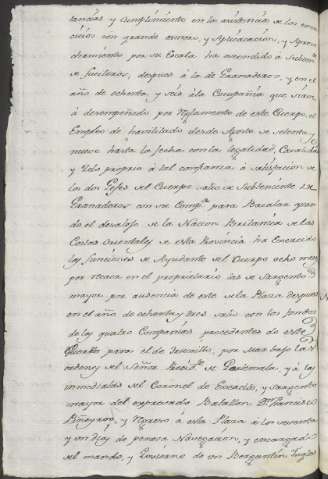 tancias y cumplimiento en la asistencia de los exer
cicios con grande esmero, y Aplicacion, y Aprove
chamiento por su Escala ha ascendido à Subten.
de fucileros, despues à la de Granaderos, y en el
año de ochenta, y seis à la Compañia que sirve
à desempeñado por Reglamento de este Cuerpo, el
Empleo de havilitado desde Agosto de setenta, y
nueve hasta la fecha con la legalidad,
y Zelo propio à tal confianza à satisfaccion de
los dos Gefes del Cuerpo salio de Subteniente de
Granaderos con su Compª para Bacalar quan
do el desalojo de la Nacion Britanica de las
Costas orientales de esta Provincia ha exercido
las funciones de Ayudante del Cuerpo ocho meses
por vacar en el propietario las de Sargento
mayor por ausencia de este de la Plaza despues
en el año de ochenta y tres salio con los
de las quatro Compañias procedentes de este
para el de Trugillo, por Mar bajo las
ordenes del Señor Presidte de Guatemala, y à las
inmediatas del Coronel de Exercito, y Sargento
mayor del expresado Batallon Dn Francisco
Piñeyro, y Regreso à esta Plaza à los noventa
y un dias de penosa Navegacion, y encargado
del mando, y Govierno de un Bergantin Ingles